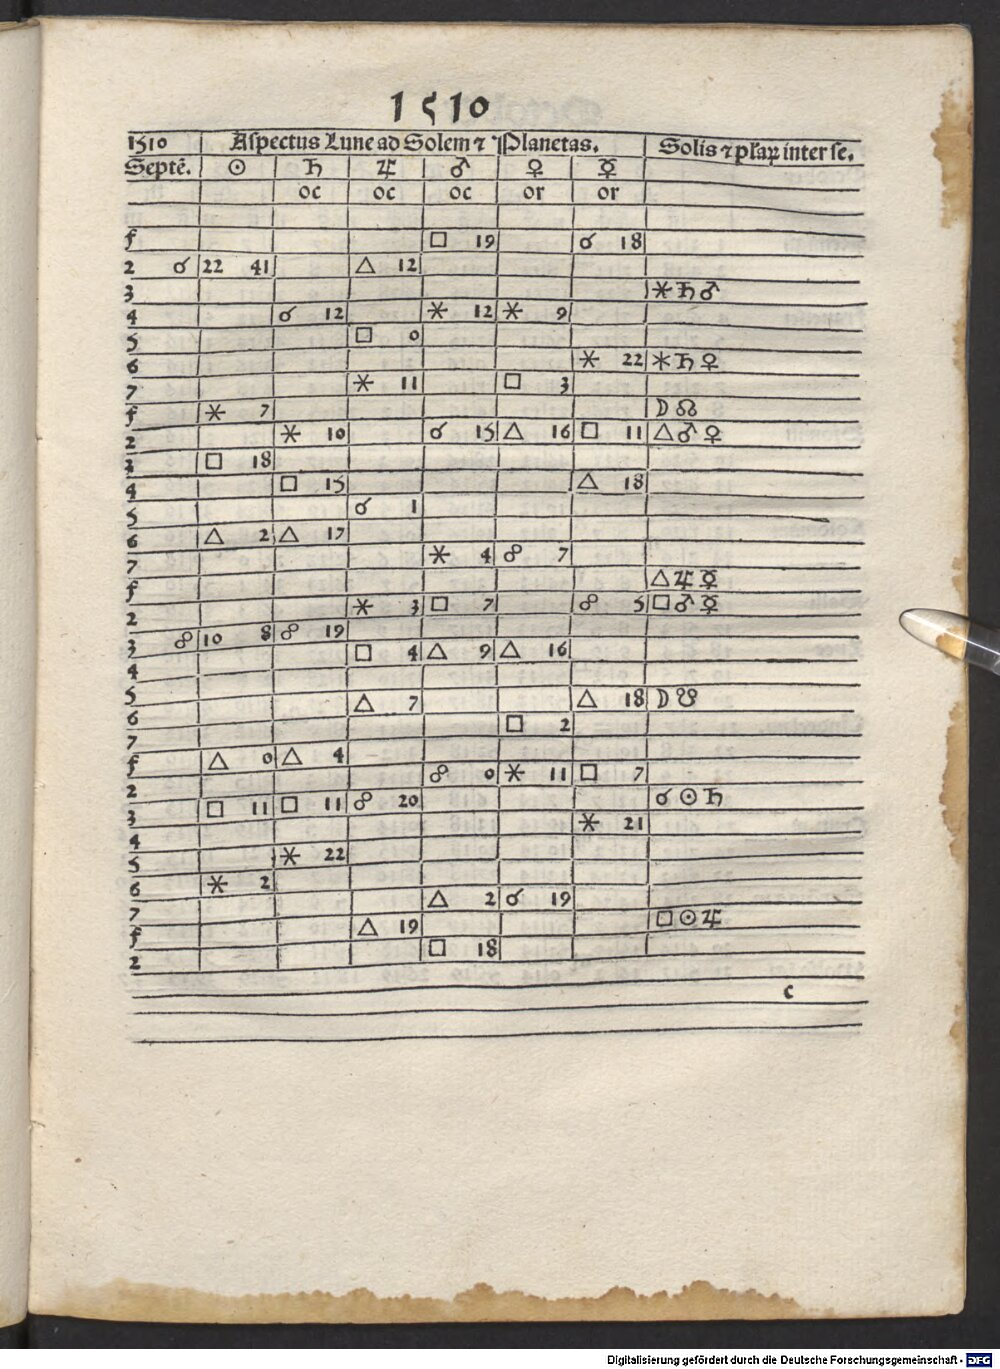 1510
1510 Aspectus Lune ad Solem ⁊ Planetas. Solis ⁊ plaꝝ inter se.
Septē. ☉ ♄ ♃ ♂ ♀ ☿
oc oc oc or or
f □ 19 ☌ 18
2 ☌ 22 41 △ 12
3 ⚹ ♄ ♂
4 ☌ 12 ⚹ 12 ⚹ 9
5 □ 0
6 ⚹ 22 ⚹ ♄ ♀
7 ⚹ 11 □ 3
f ⚹ 7 ☽ ☊
2 ⚹ 10 ☌ 15 △ 16 □ 11 △ ♂ ♀
3 □ 18
4 □ 15 △ 18
5 ☌ 1
6 △ 2 △ 17
7 ⚹ 4 ☍ 7
f △ ♃ ☿
2 ⚹ 3 □ 7 ☍ 5 □ ♂ ☿
3 ☍ 10 8 ☍ 19
4 □ 4 △ 9 △ 16
5 △ 7 △ 18 ☽ ☋
6 □ 2
7
f △ 0 △ 4
2 ☍ 0 ⚹ 11 □ 7
3 □ 11 □ 11 ☍ 20 ☌ ☉ ♄
4 ⚹ 21
5 ⚹ 22
6 ⚹ 2
7 △ 2 ☌ 19
f △ 19 □ ☉ ♃
2 □ 18
c
Digitalisierung gefördert durch die Deutsche Forschungsgemeinschaft - DFG